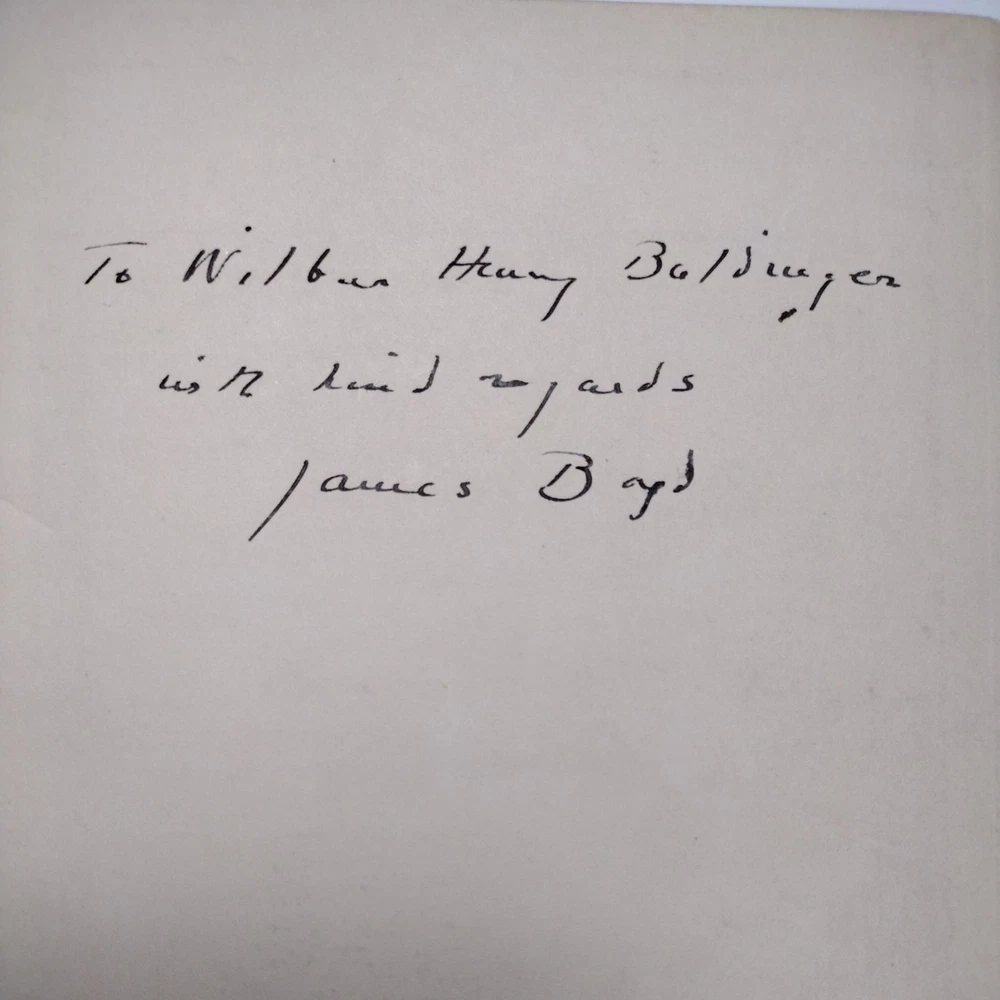 To Wilbur Henry Baldinger
with kind regards
James Boyd